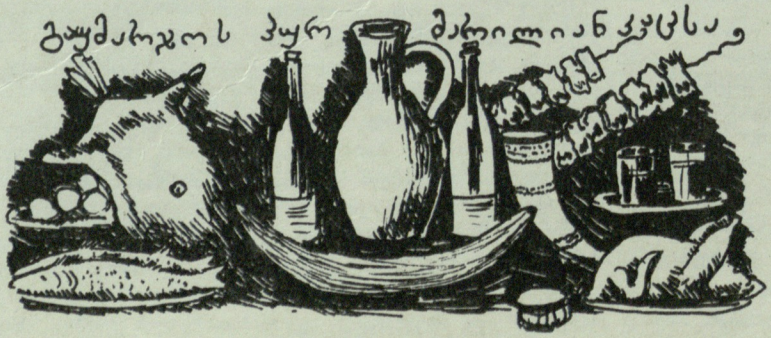 გაუმარჯოს პურ მარილიან კაცსა